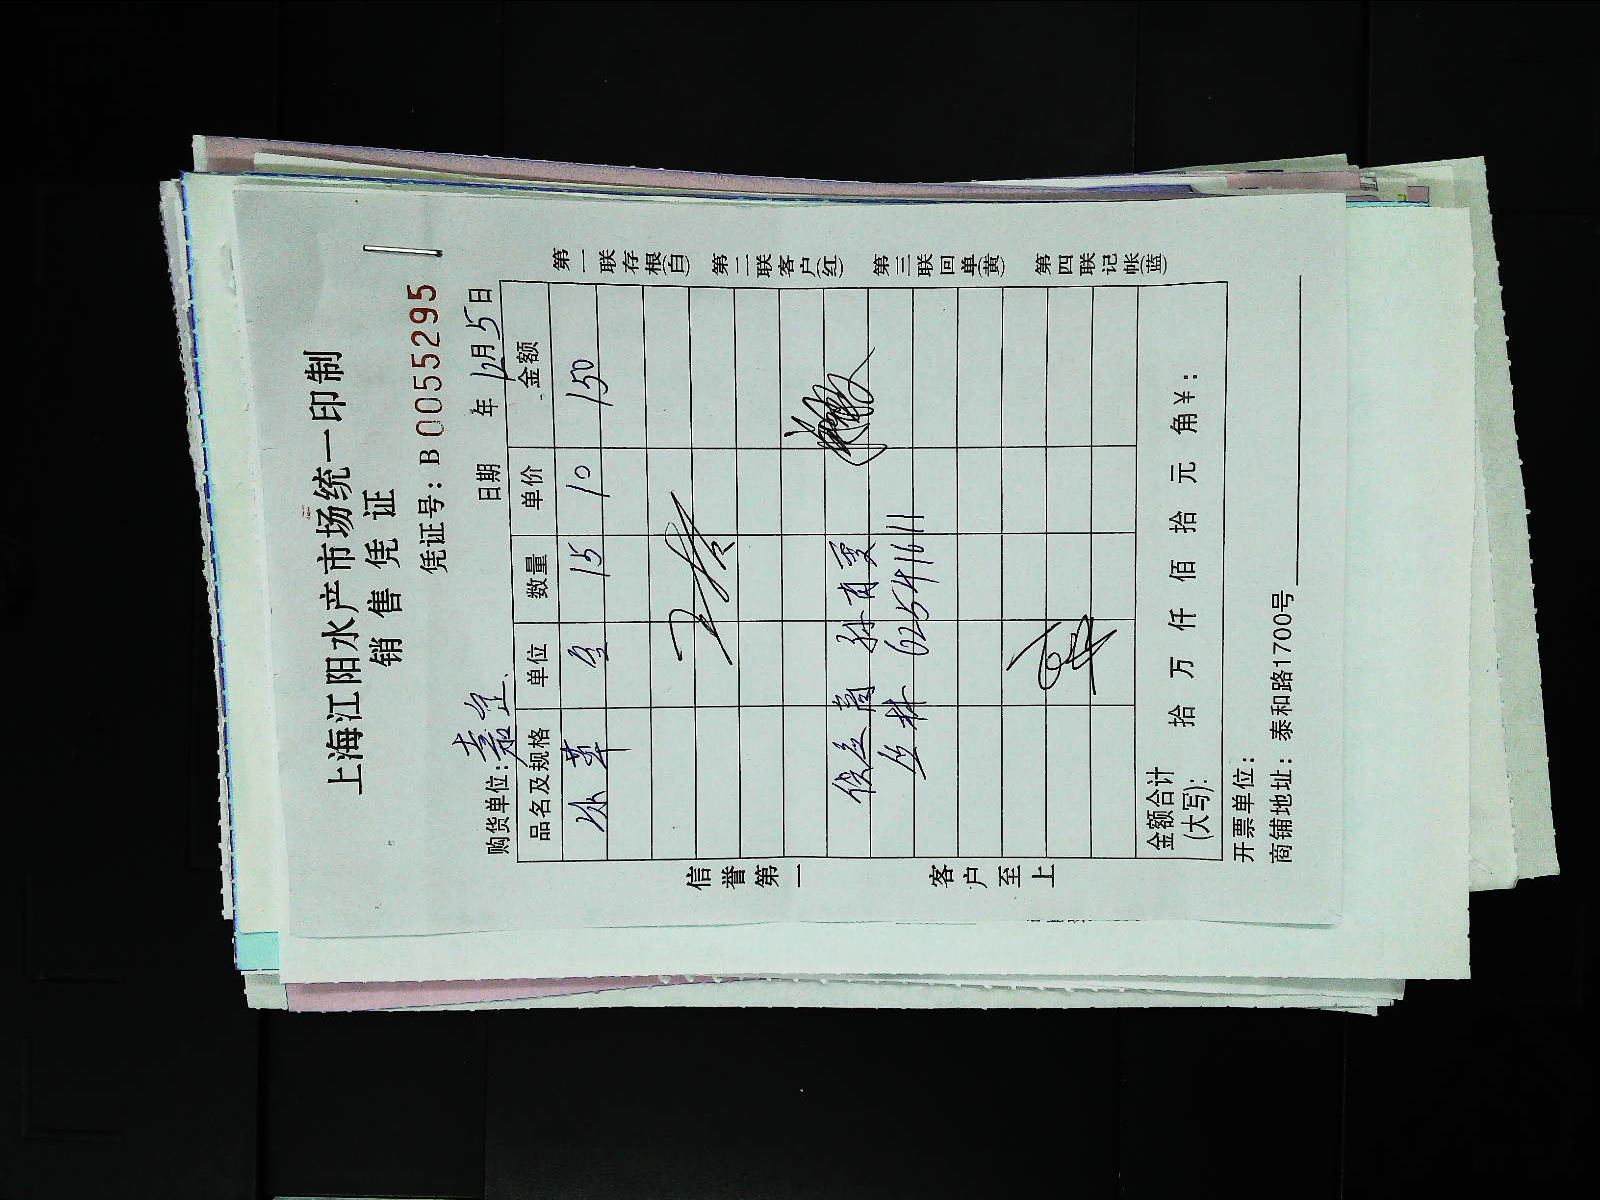 上海江阳水产市场统一印制
销售凭证
凭证号：B0055295
购货单位： 日期 年 12月5日
品名及规格 单位 数量 单价 金额
冰 15 10 150
供应商
62541611
金额合计(大写)： 拾 万 仟 佰 拾 元 角 ¥：
开票单位：
商铺地址：泰和路1700号
信誉第一 客户至上
第一联存根(白) 第二联客户(红) 第三联回单(黄) 第四联记帐(蓝)